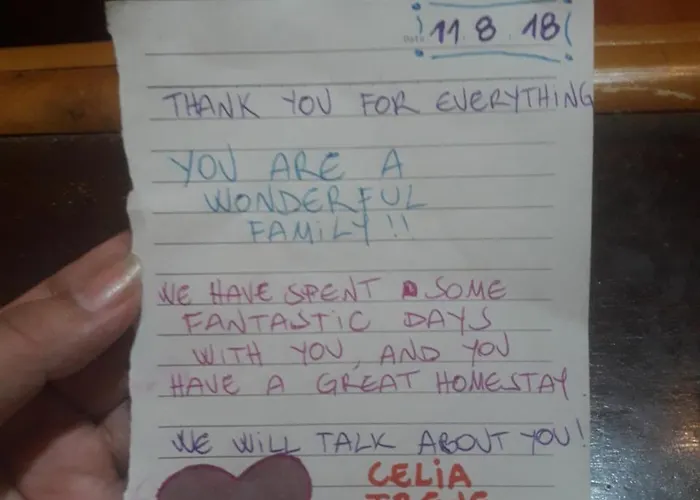 Date 11.8.18
THANK YOU FOR EVERYTHING
YOU ARE A
WONDERFUL
FAMiLY!!
WE HAVE SPENT SOME
FANTASTiC DAYS
WiTH YOU, AND YOU
HAVE A GREAT HOMESTAY.
WE WiLL TALK ABOUT YOU!
CELiA